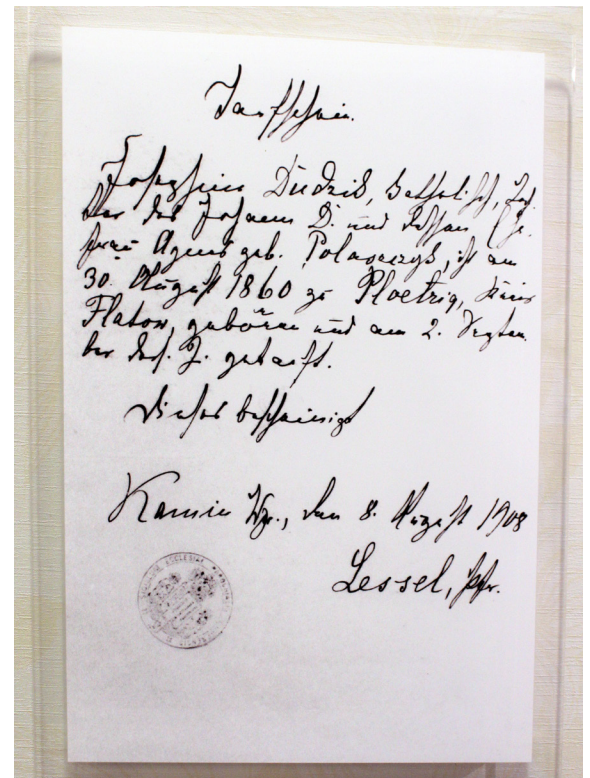 Taufschein.
Josephine Dudzik, katholisch, Toch
ter des Johann D. und dessen Ehe
frau Agnes geb. Polaszczyk, ist am
30. August 1860 zu Ploetzig, Kreis
Flatow, geboren und am 2. Septem
ber des. J. getauft.
Dieses bescheinigt
Kamin Wpr., den 8. August 1908
Lessel, Pfr.
ECCLESIAE